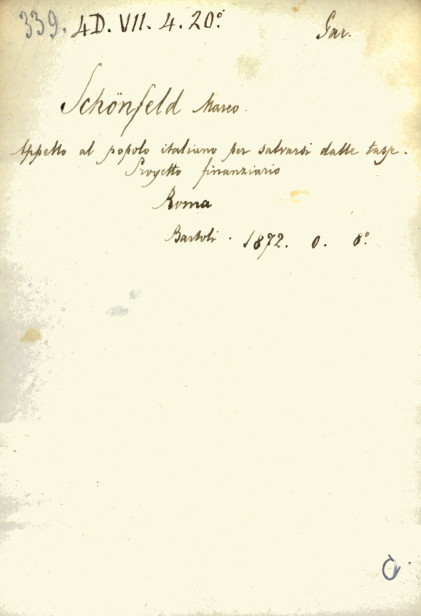 339. 4D. VII. 4. 20° Gar.
Schönfeld Marco.
Appello al popolo italiano per salvarsi dalle tasse.
Progetto finanziario
Roma
Bartoli. 1872. 0. 8°.